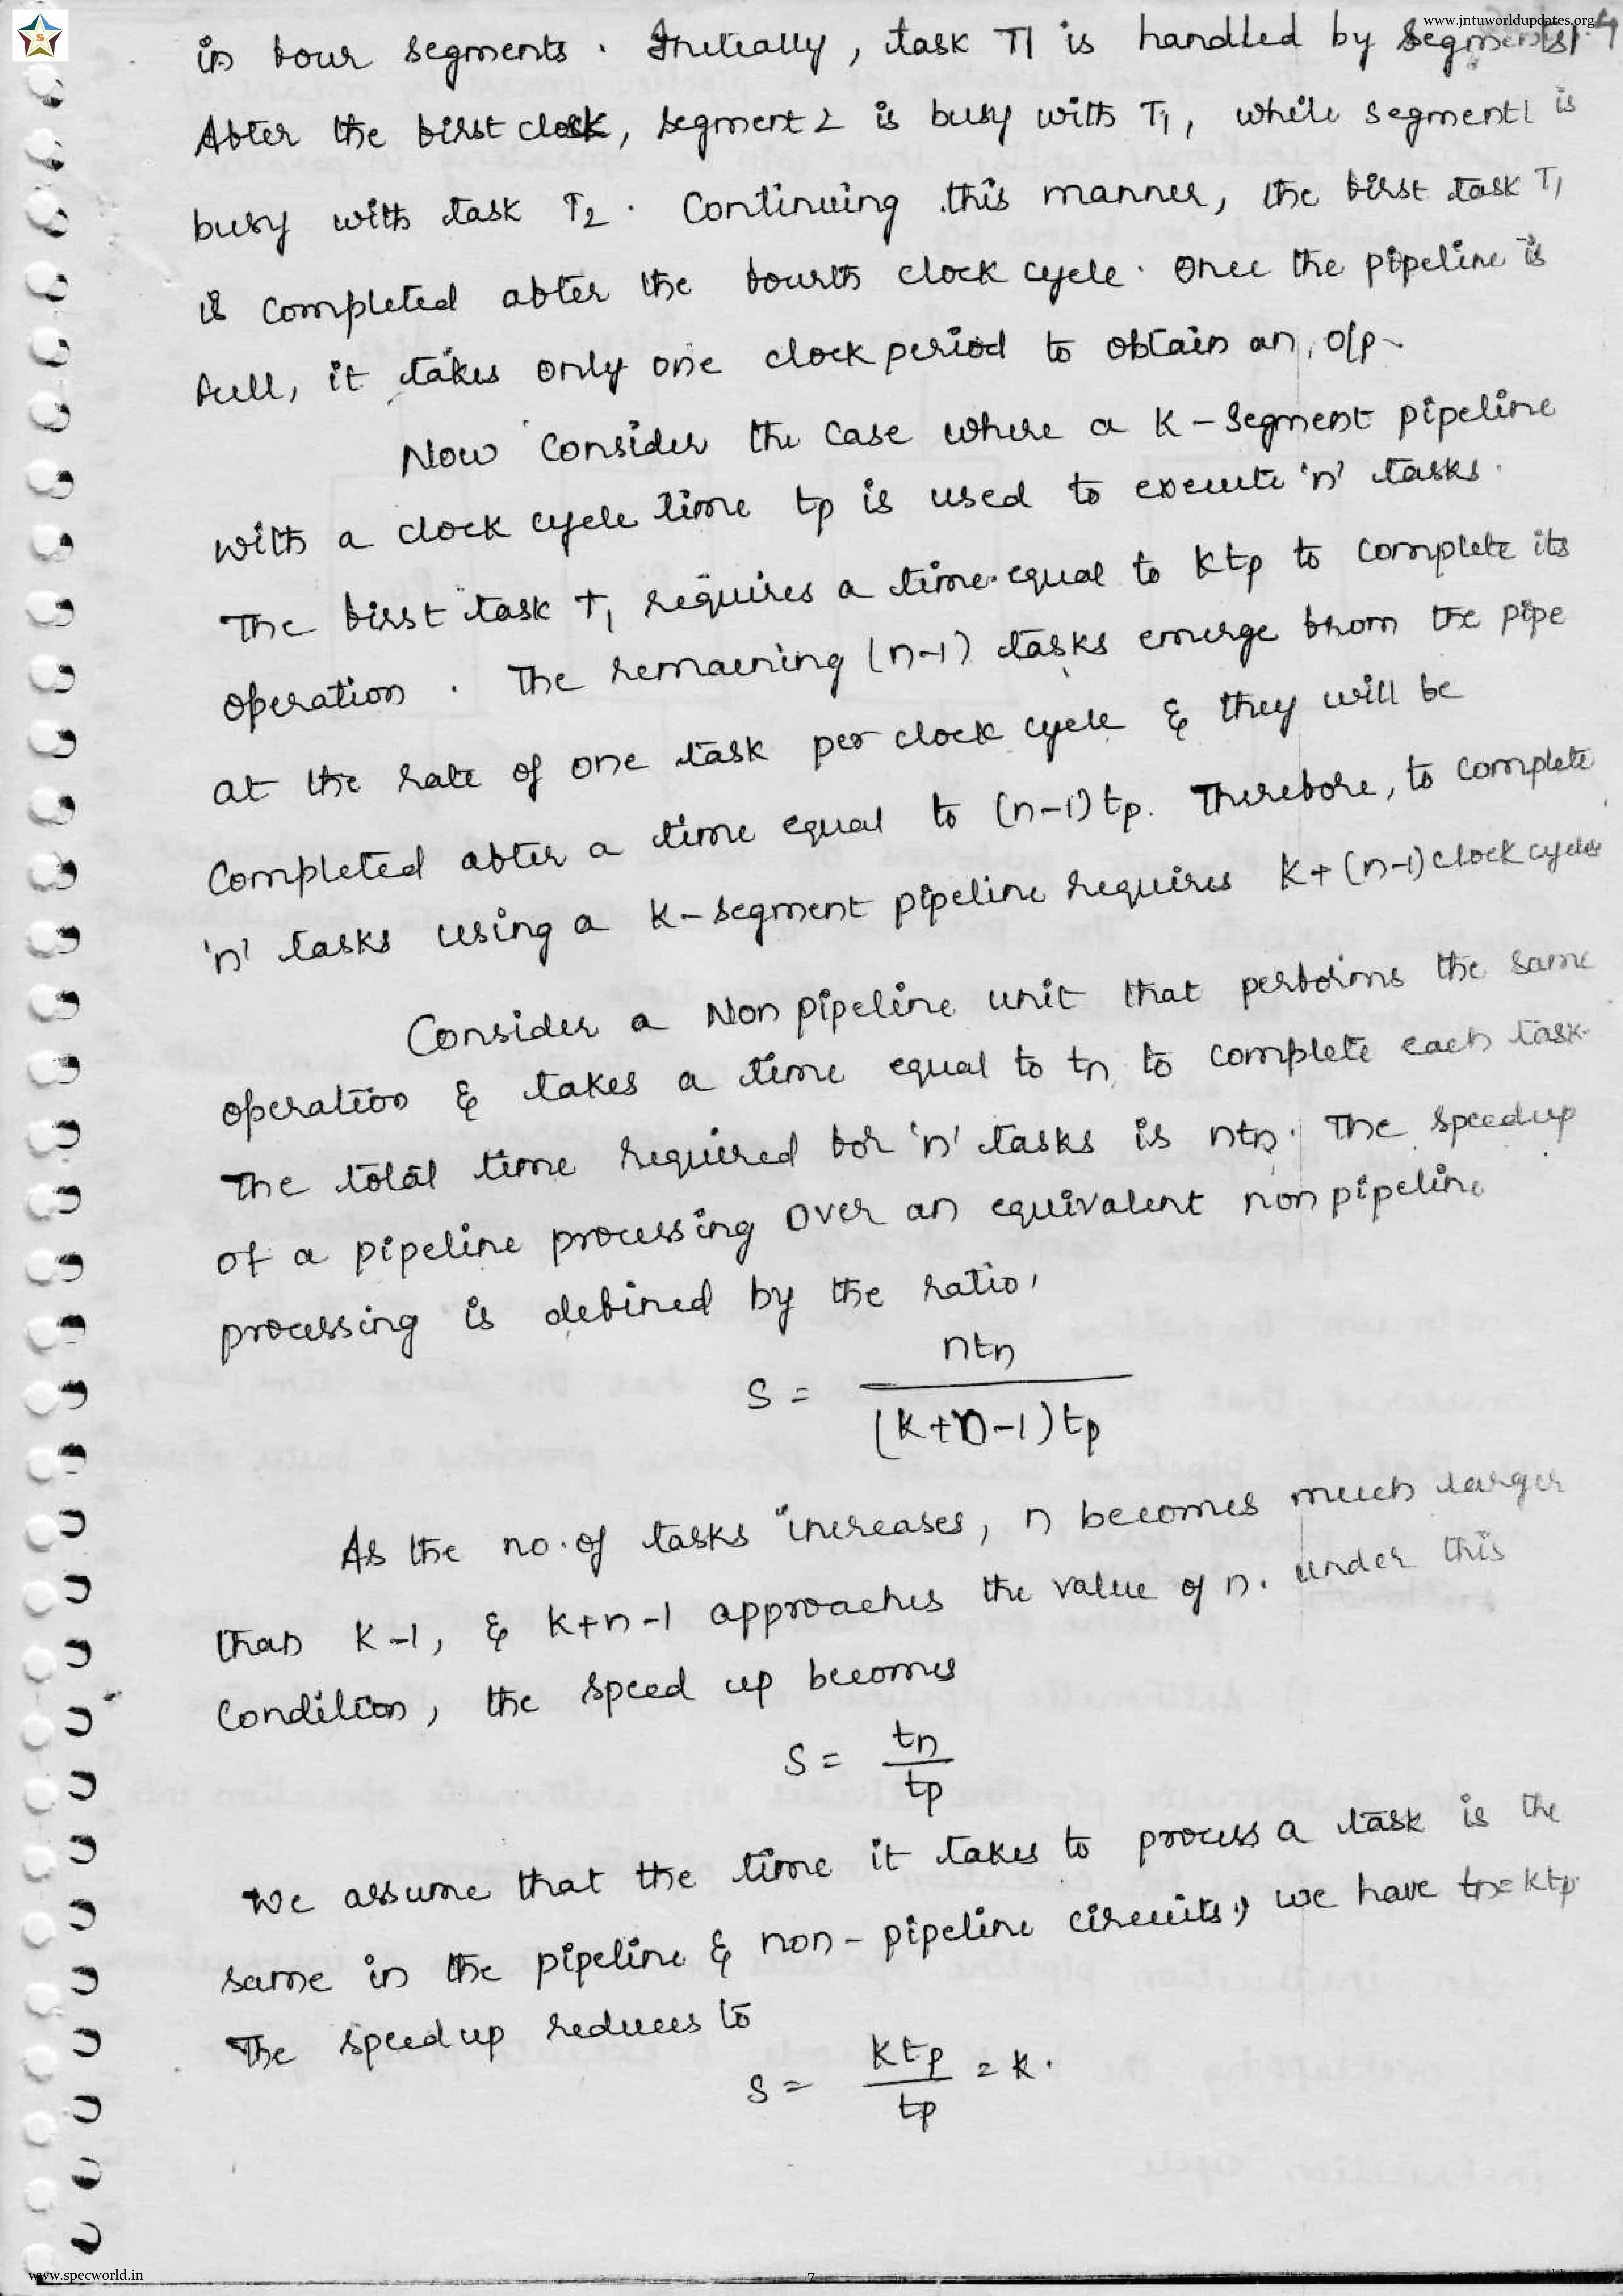 www.jntuworldupdates.org
in four segments. Initially, task T1 is handled by segment 1.
After the first clock, segment 2 is busy with T1, while segment 1 is
busy with task T2. Continuing this manner, the first task T1
is completed after the fourth clock cycle. Once the pipeline is
full, it takes only one clock period to obtain an o/p.
Now consider the case where a K-Segment pipeline
with a clock cycle time tp is used to execute 'n' tasks.
The first task T1 requires a time equal to Ktp to complete its
operation. The remaining (n-1) tasks emerge from the pipe
at the rate of one task per clock cycle & they will be
completed after a time equal to (n-1)tp. Therefore, to complete
'n' tasks using a K-segment pipeline requires K+(n-1) clock cycles
Consider a Non pipeline unit that performs the same
operation & takes a time equal to tn to complete each task.
The total time required for 'n' tasks is ntn. The speedup
of a pipeline processing over an equivalent non pipeline
processing is defined by the ratio,
S = ntn / (K+n-1)tp
As the no. of tasks increases, n becomes much larger
than K-1, & K+n-1 approaches the value of n. under this
Condition, the speed up becomes
S = tn / tp
We assume that the time it takes to process a task is the
same in the pipeline & non-pipeline circuits, we have tn=Ktp.
The speedup reduces to
S = Ktp / tp = K.
www.specworld.in
7